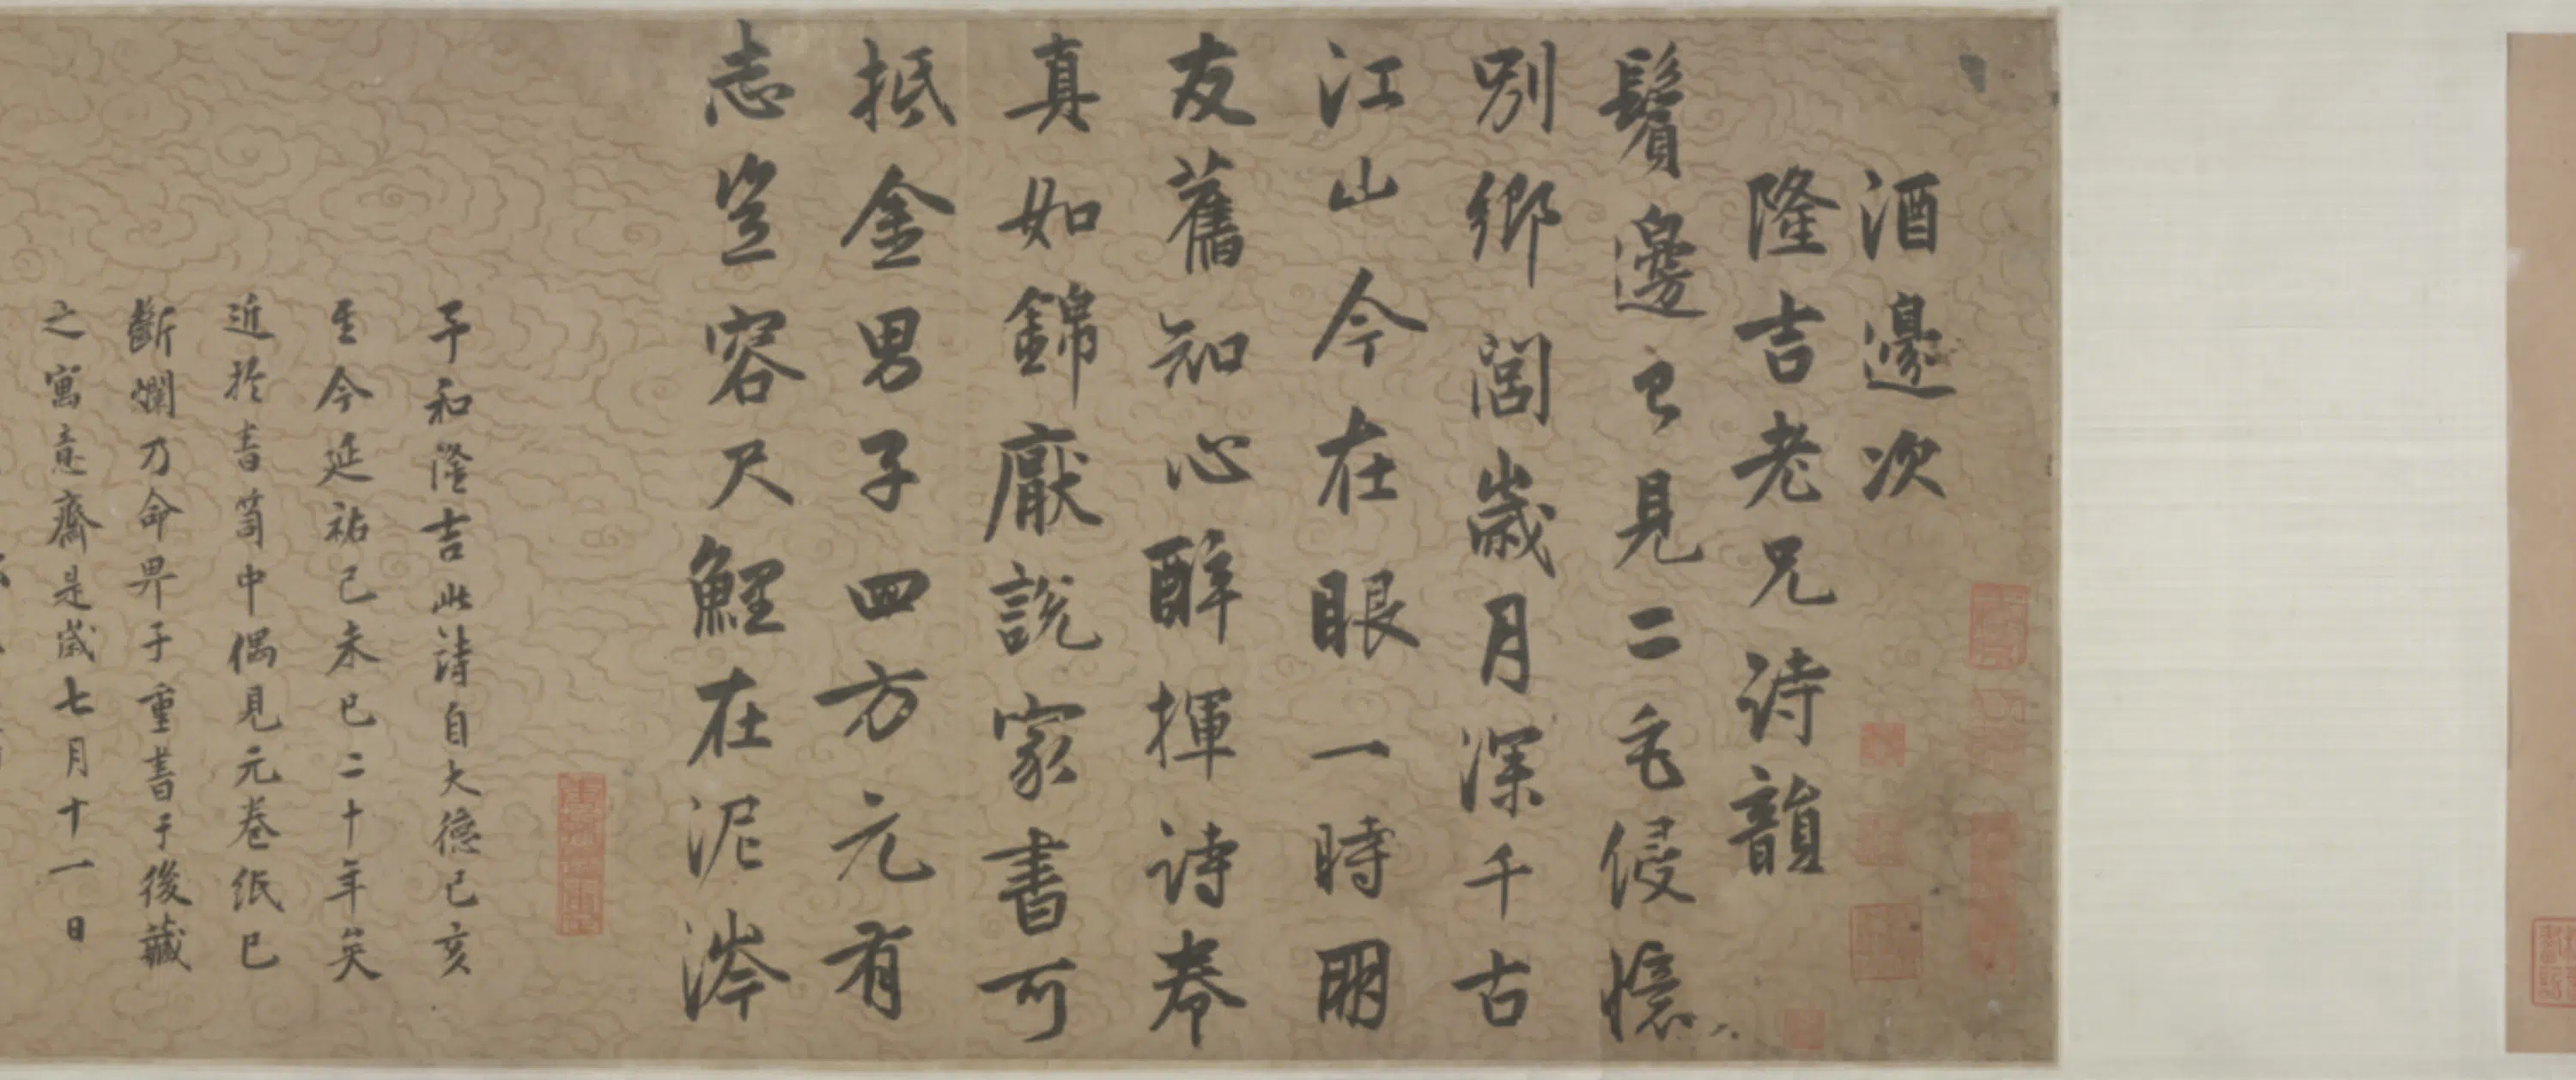 酒邊次
隆吉老兄詩韻
鬢邊已見二毛侵憶
別鄉閭歲月深千古
江山今在眼一時朋
友舊知心醉揮詩卷
真如錦厭說家書可
抵金男子四方元有
志豈容尺鯉在泥涔
予和隆吉此詩自大德己亥
至今延祐己未已二十年矣
近於書笥中偶見元卷紙已
斷爛乃命畀予重書于後藏
之寓意齋是歲七月十一日